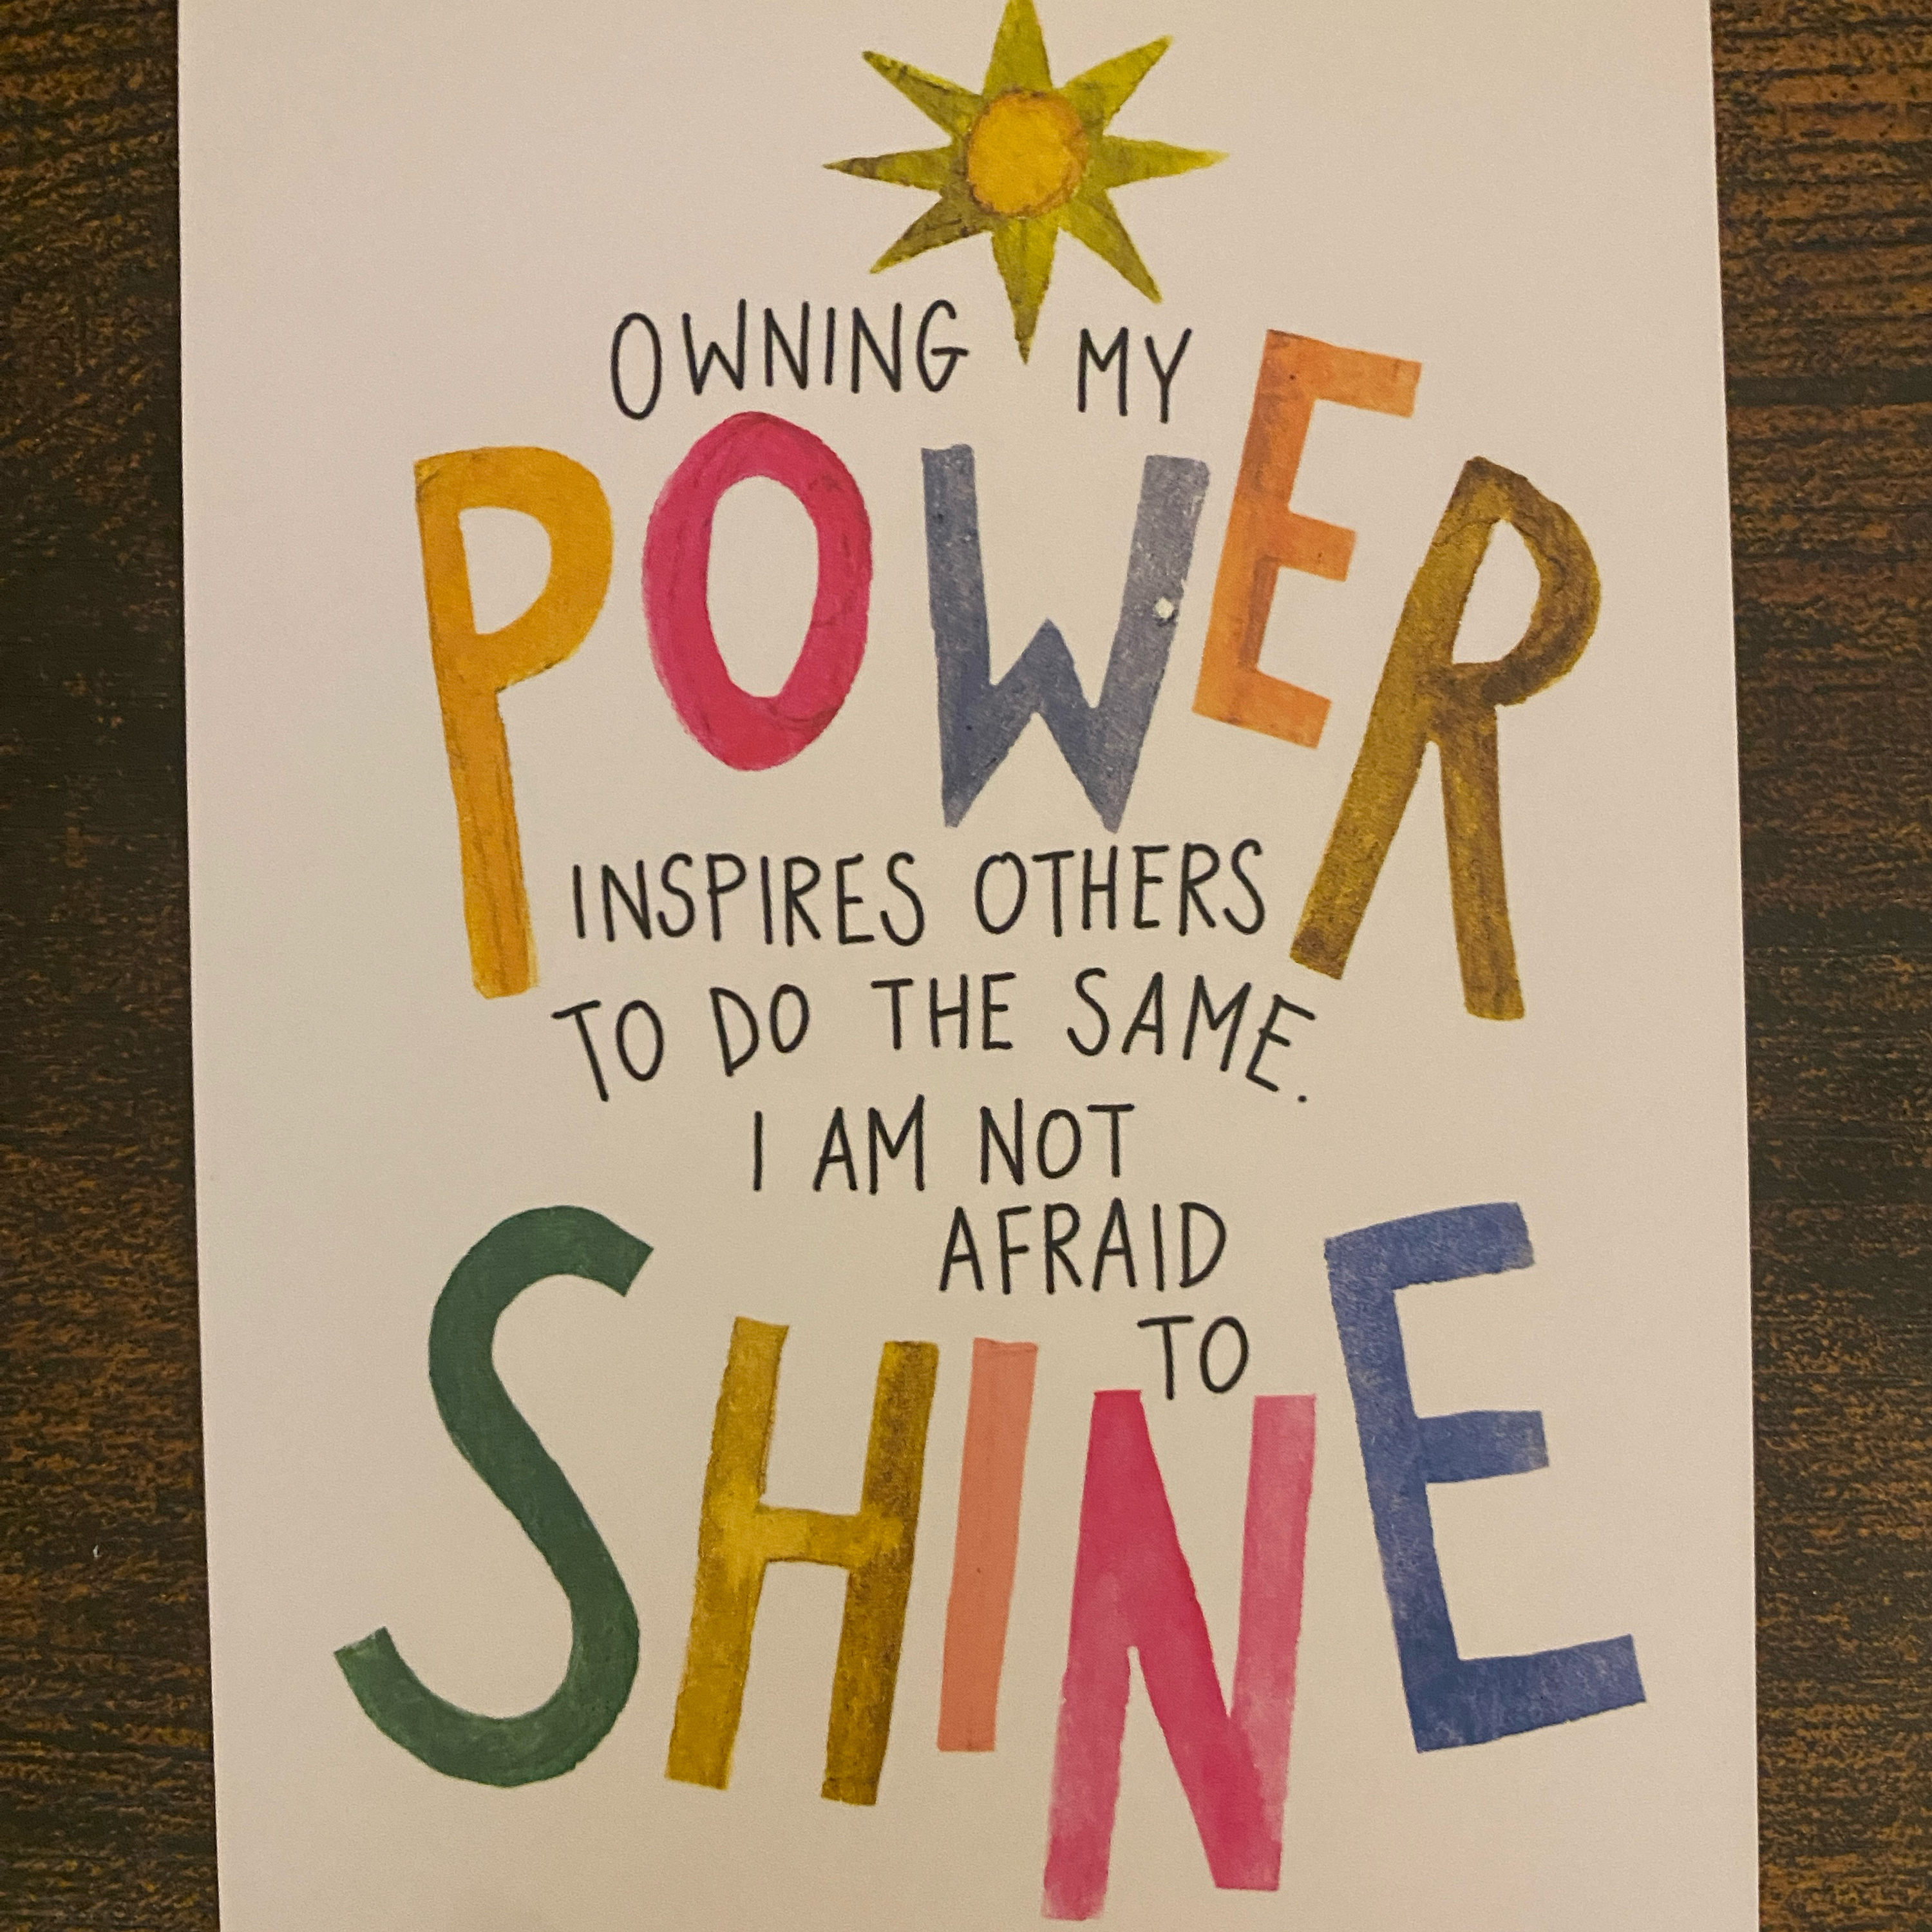 OWNING MY
POWER
INSPIRES OTHERS
TO DO THE SAME.
I AM NOT
AFRAID
TO
SHINE